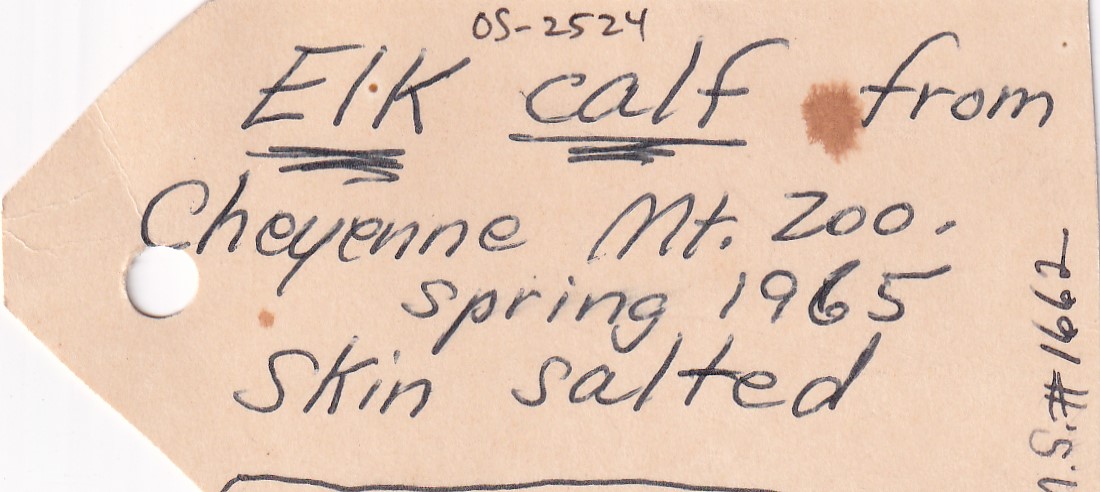 OS-2524
Elk calf from
Cheyenne Mt. Zoo.
spring 1965
Skin salted
.S.#1662